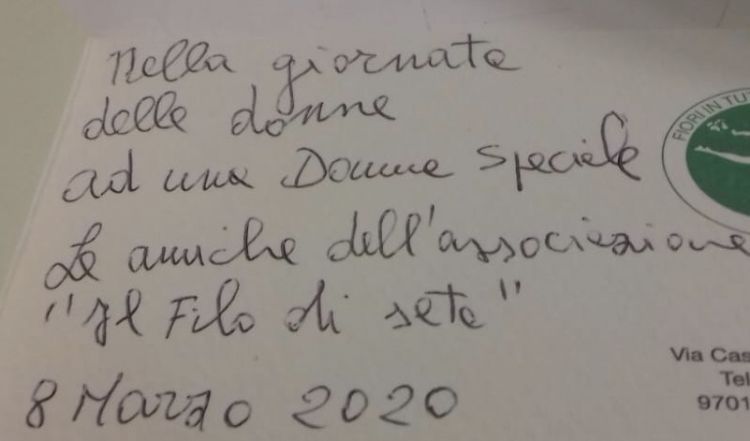 Nella giornata
delle donne
ad una Donna speciale
Le amiche dell'associazione
"Il Filo di seta"
8 Marzo 2020
FIORI IN TUT
Via Cas
Tel
9701